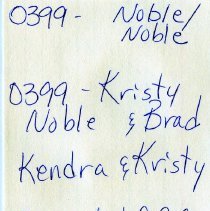 0399 - Noble/
Noble
0399 - Kristy
Noble & Brad
Kendra & Kristy